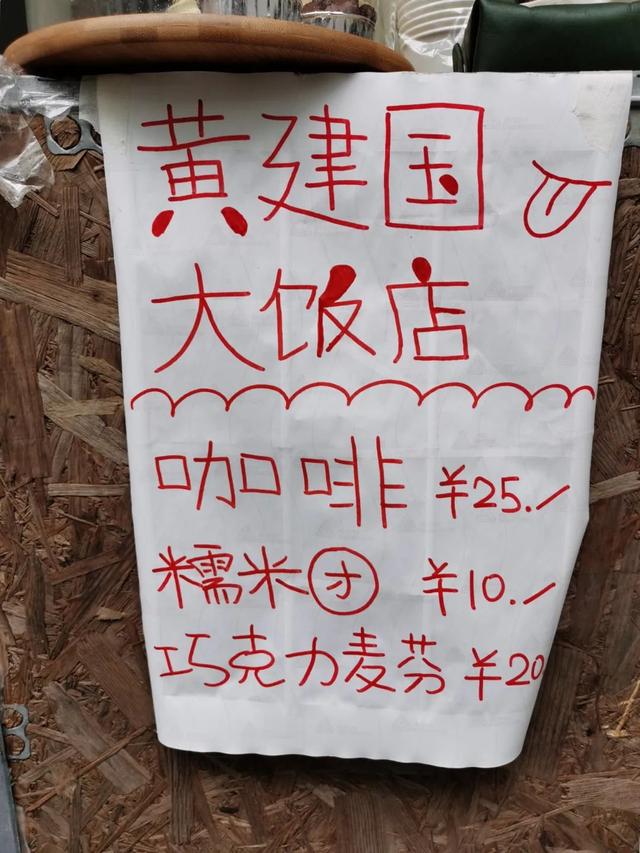 黄建国
大饭店
咖啡 ¥25./
糯米团 ¥10./
巧克力麦芬 ¥20